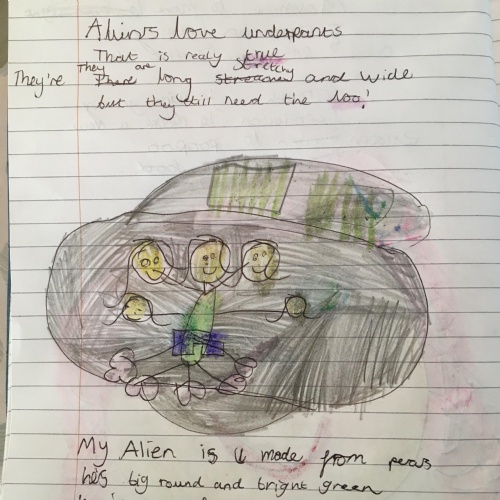 Aliens love underpants
That is realy true
They are stretchy
They're long and wide
but they still need the loo!
My Alien is made from pears
he's big round and bright green